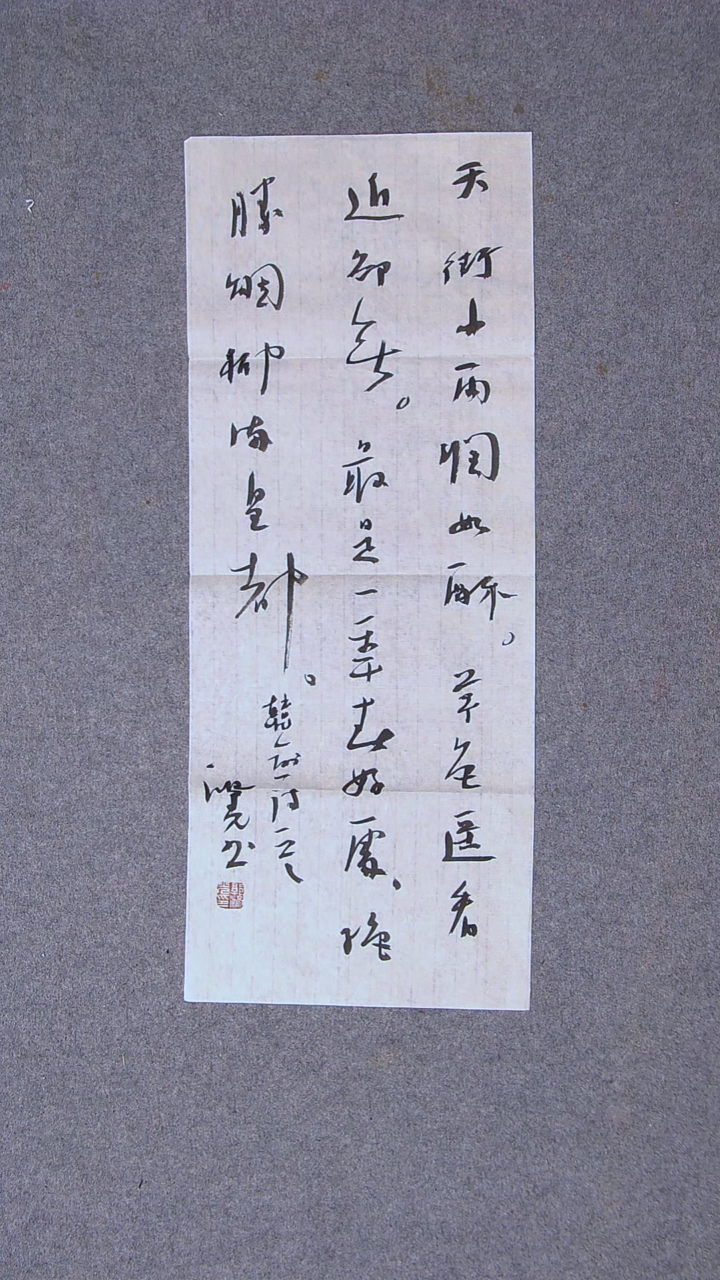 天街小雨潤如酥。草色遥看
近卻無。最是一年春好處、絕
勝烟柳滿皇都。
韓愈詩
书